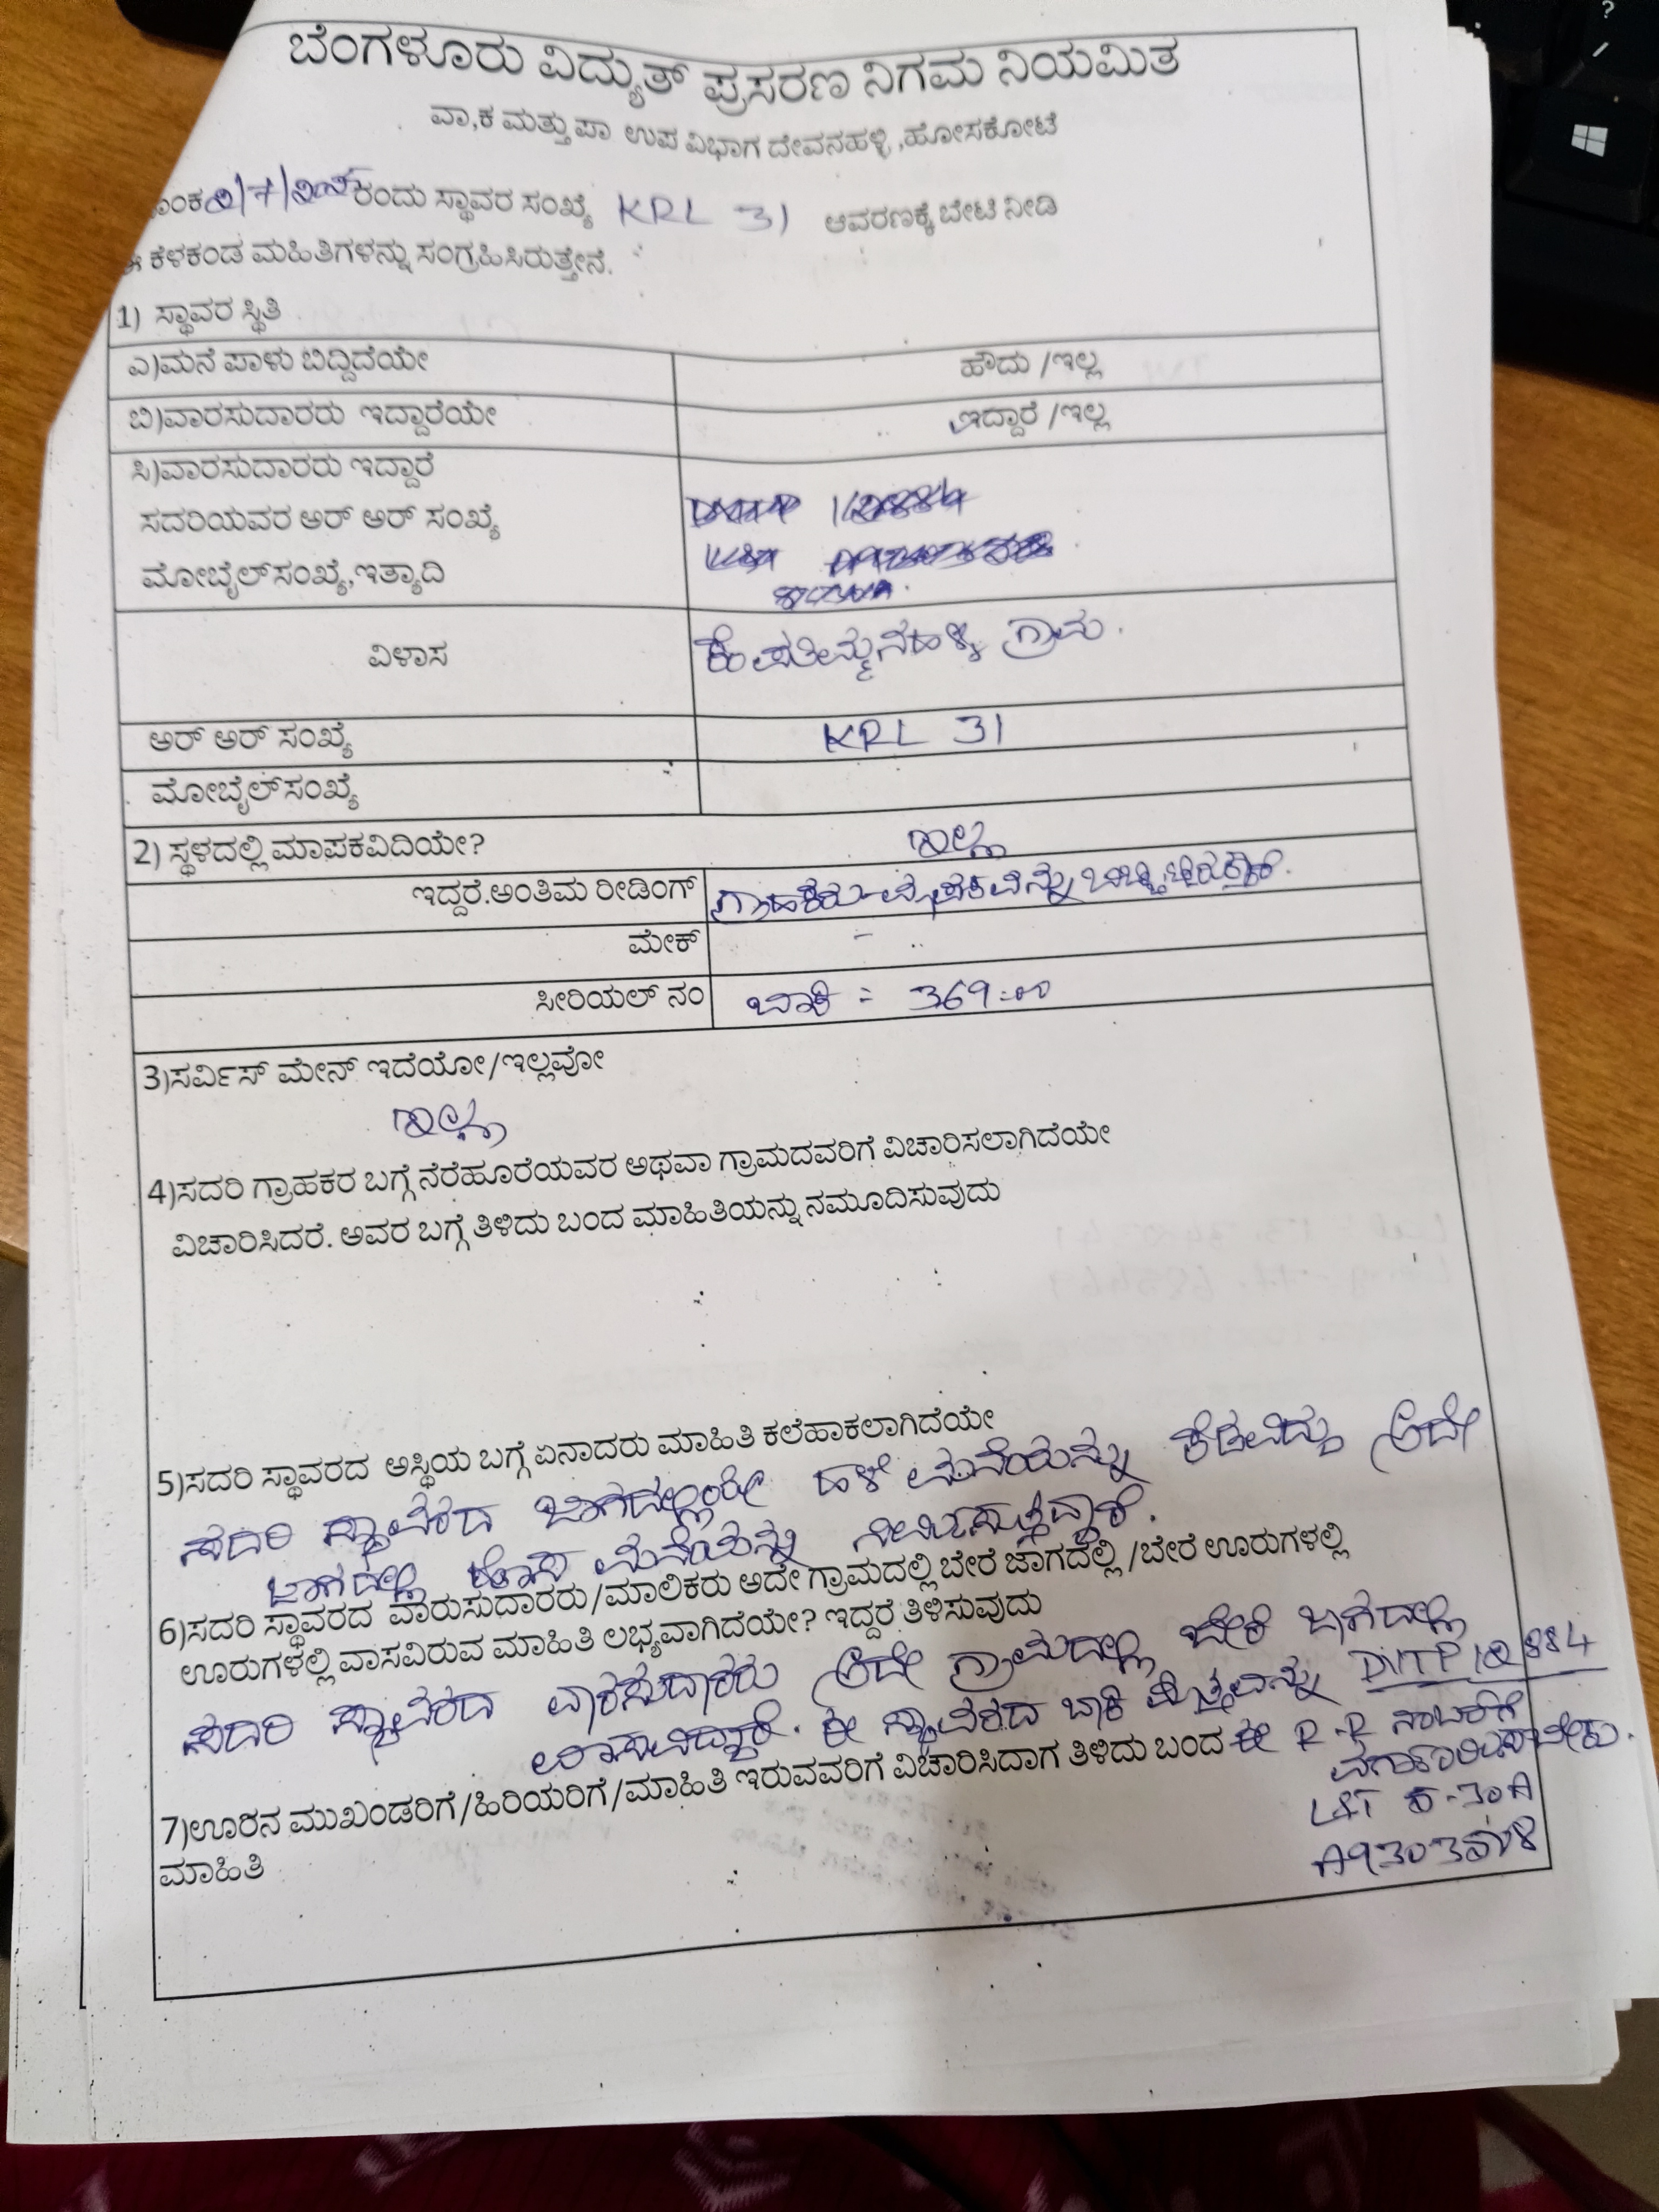 ಬೆಂಗಳೂರು ವಿದ್ಯುತ್ ಪ್ರಸರಣ ನಿಗಮ ನಿಯಮಿತ
ವಾ,ಕ ಮತ್ತು ಪಾ ಉಪ ವಿಭಾಗ ದೇವನಹಳ್ಳಿ ,ಹೋಸಕೋಟೆ
ರಂದು ಸ್ಥಾವರ ಸಂಖ್ಯೆ KRL 31 ಆವರಣಕ್ಕೆ ಬೇಟಿ ನೀಡಿ
ಈ ಕೆಳಕಂಡ ಮಹಿತಿಗಳನ್ನು ಸಂಗ್ರಹಿಸಿರುತ್ತೇನೆ.
1) ಸ್ಥಾವರ ಸ್ಥಿತಿ
ಎ)ಮನೆ ಪಾಳು ಬಿದ್ದಿದೆಯೇ ಹೌದು /ಇಲ್ಲ
ಬಿ)ವಾರಸುದಾರರು ಇದ್ದಾರೆಯೇ ಇದ್ದಾರೆ /ಇಲ್ಲ
ಸಿ)ವಾರಸುದಾರರು ಇದ್ದಾರೆ
ಸದರಿಯವರ ಅರ್ ಅರ್ ಸಂಖ್ಯೆ
ಮೋಬೈಲ್ ಸಂಖ್ಯೆ,ಇತ್ಯಾದಿ
ವಿಳಾಸ ಗ್ರಾಮ.
ಅರ್ ಅರ್ ಸಂಖ್ಯೆ KRL 31
ಮೋಬೈಲ್ ಸಂಖ್ಯೆ
2) ಸ್ಥಳದಲ್ಲಿ ಮಾಪಕವಿದಿಯೇ? ಇಲ್ಲ
ಇದ್ದರೆ.ಅಂತಿಮ ರೀಡಿಂಗ್ ಗ್ರಾಹಕರು
ಮೇಕ್ -
ಸೀರಿಯಲ್ ನಂ ಬಾಕಿ = 369=00
3)ಸರ್ವಿಸ್ ಮೇನ್ ಇದೆಯೋ/ಇಲ್ಲವೋ
ಇಲ್ಲ
4)ಸದರಿ ಗ್ರಾಹಕರ ಬಗ್ಗೆ ನೆರೆಹೂರೆಯವರ ಅಥವಾ ಗ್ರಾಮದವರಿಗೆ ವಿಚಾರಿಸಲಾಗಿದೆಯೇ
ವಿಚಾರಿಸಿದರೆ. ಅವರ ಬಗ್ಗೆ ತಿಳಿದು ಬಂದ ಮಾಹಿತಿಯನ್ನು ನಮೂದಿಸುವುದು
5)ಸದರಿ ಸ್ಥಾವರದ ಅಸ್ಥಿಯ ಬಗ್ಗೆ ಏನಾದರು ಮಾಹಿತಿ ಕಲೆಹಾಕಲಾಗಿದೆಯೇ
ಸದರಿ ಸ್ಥಾವರದ ಹಳೆ ಮನೆಯನ್ನು ಕೆಡವಿದ್ದು ಅದೇ
ಜಾಗದಲ್ಲಿ ಹೊಸ ಮನೆಯನ್ನು
6)ಸದರಿ ಸ್ಥಾವರದ ವಾರುಸುದಾರರು/ಮಾಲಿಕರು ಅದೇ ಗ್ರಾಮದಲ್ಲಿ ಬೇರೆ ಜಾಗದಲ್ಲಿ /ಬೇರೆ ಊರುಗಳಲ್ಲಿ
ಊರುಗಳಲ್ಲಿ ವಾಸವಿರುವ ಮಾಹಿತಿ ಲಭ್ಯವಾಗಿದೆಯೇ? ಇದ್ದರೆ ತಿಳಿಸುವುದು
ಸದರಿ ಸ್ಥಾವರದ ವಾರಸುದಾರರು ಅದೇ ಗ್ರಾಮದಲ್ಲಿ ಬೇರೆ ಜಾಗದಲ್ಲಿ
ವಾಸವಿದ್ದಾರೆ. ಈ ಸ್ಥಾವರದ ಬಾಕಿ ಮೊತ್ತವನ್ನು
7)ಊರಿನ ಮುಖಂಡರಿಗೆ/ಹಿರಿಯರಿಗೆ/ಮಾಹಿತಿ ಇರುವವರಿಗೆ ವಿಚಾರಿಸಿದಾಗ ತಿಳಿದು ಬಂದ ಈ R-R ನಂಬರಿಗೆ
ಮಾಹಿತಿ
L&T 5-30A